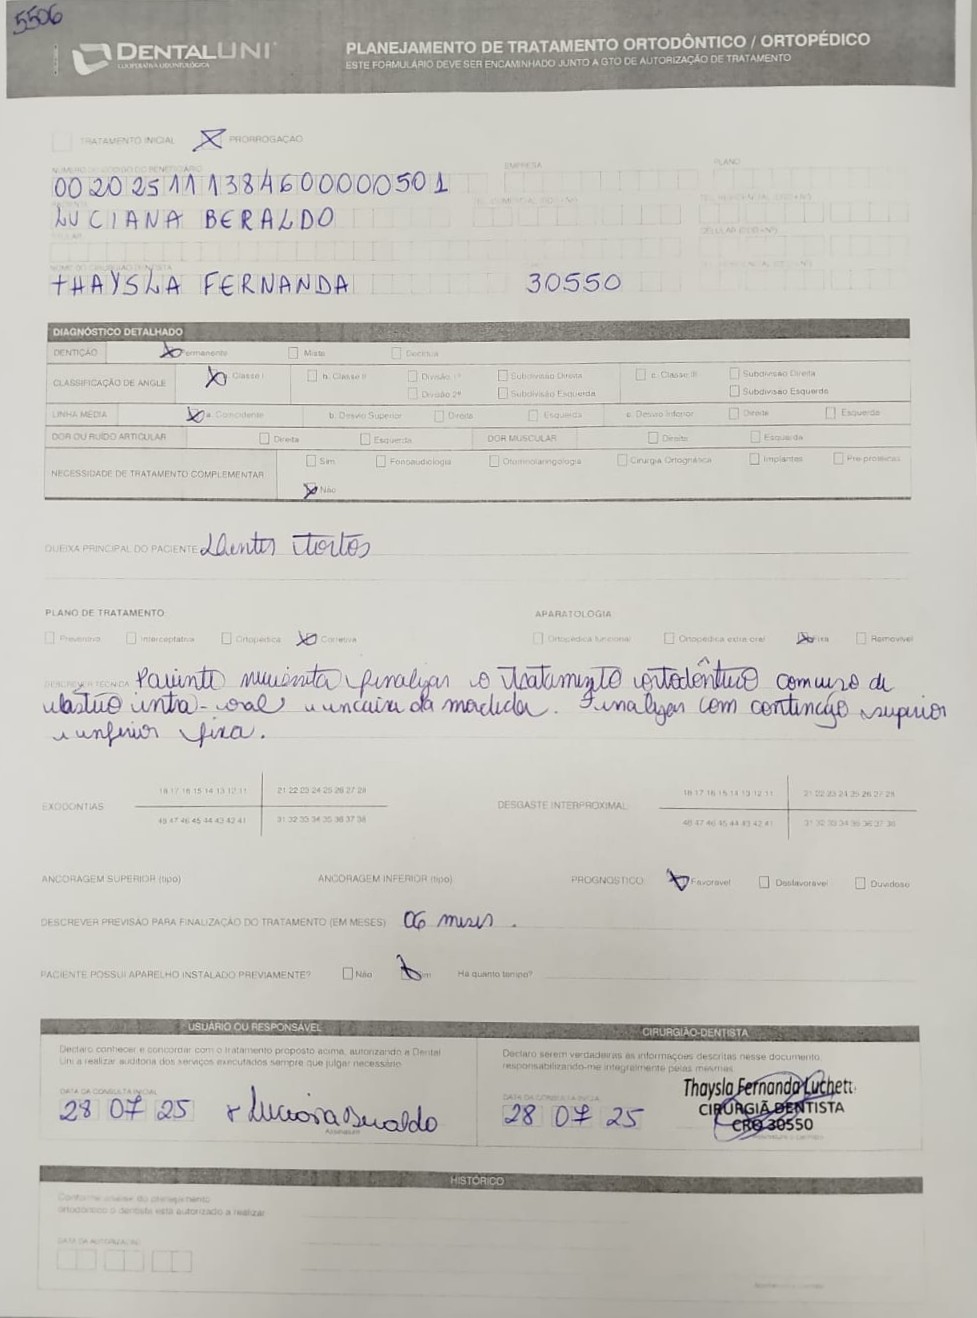 5506
DENTALUNI
COOPERATIVA ODONTOLÓGICA
PLANEJAMENTO DE TRATAMENTO ORTODÔNTICO / ORTOPÉDICO
ESTE FORMULÁRIO DEVE SER ENCAMINHADO JUNTO A GTO DE AUTORIZAÇÃO DE TRATAMENTO
TRATAMENTO INICIAL PRORROGAÇÃO
EMPRESA PLANO
00202511138460000501
LUCIANA BERALDO
THAYSLA FERNANDA 30550
DIAGNÓSTICO DETALHADO
DENTIÇÃO Permanente Mista Decídua
CLASSIFICAÇÃO DE ANGLE Classe I b. Classe II Divisão 1ª Subdivisão Direita c. Classe III Subdivisão Direita
Divisão 2ª Subdivisão Esquerda Subdivisão Esquerda
LINHA MÉDIA a. Coincidente b. Desvio Superior Direita Esquerda c. Desvio Inferior Direita Esquerda
DOR OU RUÍDO ARTICULAR Direita Esquerda DOR MUSCULAR Direita Esquerda
NECESSIDADE DE TRATAMENTO COMPLEMENTAR Sim Fonoaudiologia Otorrinolaringologia Cirurgia Ortognática Implantes Pré-protéticas
Não
QUEIXA PRINCIPAL DO PACIENTE Dentes tortos
PLANO DE TRATAMENTO: APARATOLOGIA:
Preventiva Interceptativa Ortopédica Corretiva Ortopédica funcional Ortopédica extra oral Fixa Removível
DESCREVER TÉCNICA Paciente necessita finalizar o tratamento ortodôntico com uso de
elástico intra-oral e encaixe da mordida. Finalizar com contenção superior
e inferior fixa.
EXODONTIAS 18 17 16 15 14 13 12 11 21 22 23 24 25 26 27 28
48 47 46 45 44 43 42 41 31 32 33 34 35 36 37 38
DESGASTE INTERPROXIMAL 18 17 16 15 14 13 12 11 21 22 23 24 25 26 27 28
48 47 46 45 44 43 42 41 31 32 33 34 35 36 37 38
ANCORAGEM SUPERIOR (tipo) ANCORAGEM INFERIOR (tipo) PROGNÓSTICO Favorável Desfavorável Duvidoso
DESCREVER PREVISÃO PARA FINALIZAÇÃO DO TRATAMENTO (EM MESES) 06 meses.
PACIENTE POSSUI APARELHO INSTALADO PREVIAMENTE? Não Sim Há quanto tempo?
USUÁRIO OU RESPONSÁVEL
Declaro conhecer e concordar com o tratamento proposto acima, autorizando a Dental
Uni a realizar auditoria dos serviços executados sempre que julgar necessário.
DATA DA CONSULTA INICIAL
28 07 25 x Luciana Beraldo
Assinatura
CIRURGIÃO-DENTISTA
Declaro serem verdadeiras as informações descritas nesse documento,
responsabilizando-me integralmente pelas mesmas.
DATA DA CONSULTA INICIAL
28 07 25
Thaysla Fernanda Luchett
CIRURGIÃ DENTISTA
CRO 30550
HISTÓRICO
Conforme análise do planejamento
ortodôntico o dentista está autorizado a realizar
DATA DA AUTORIZAÇÃO